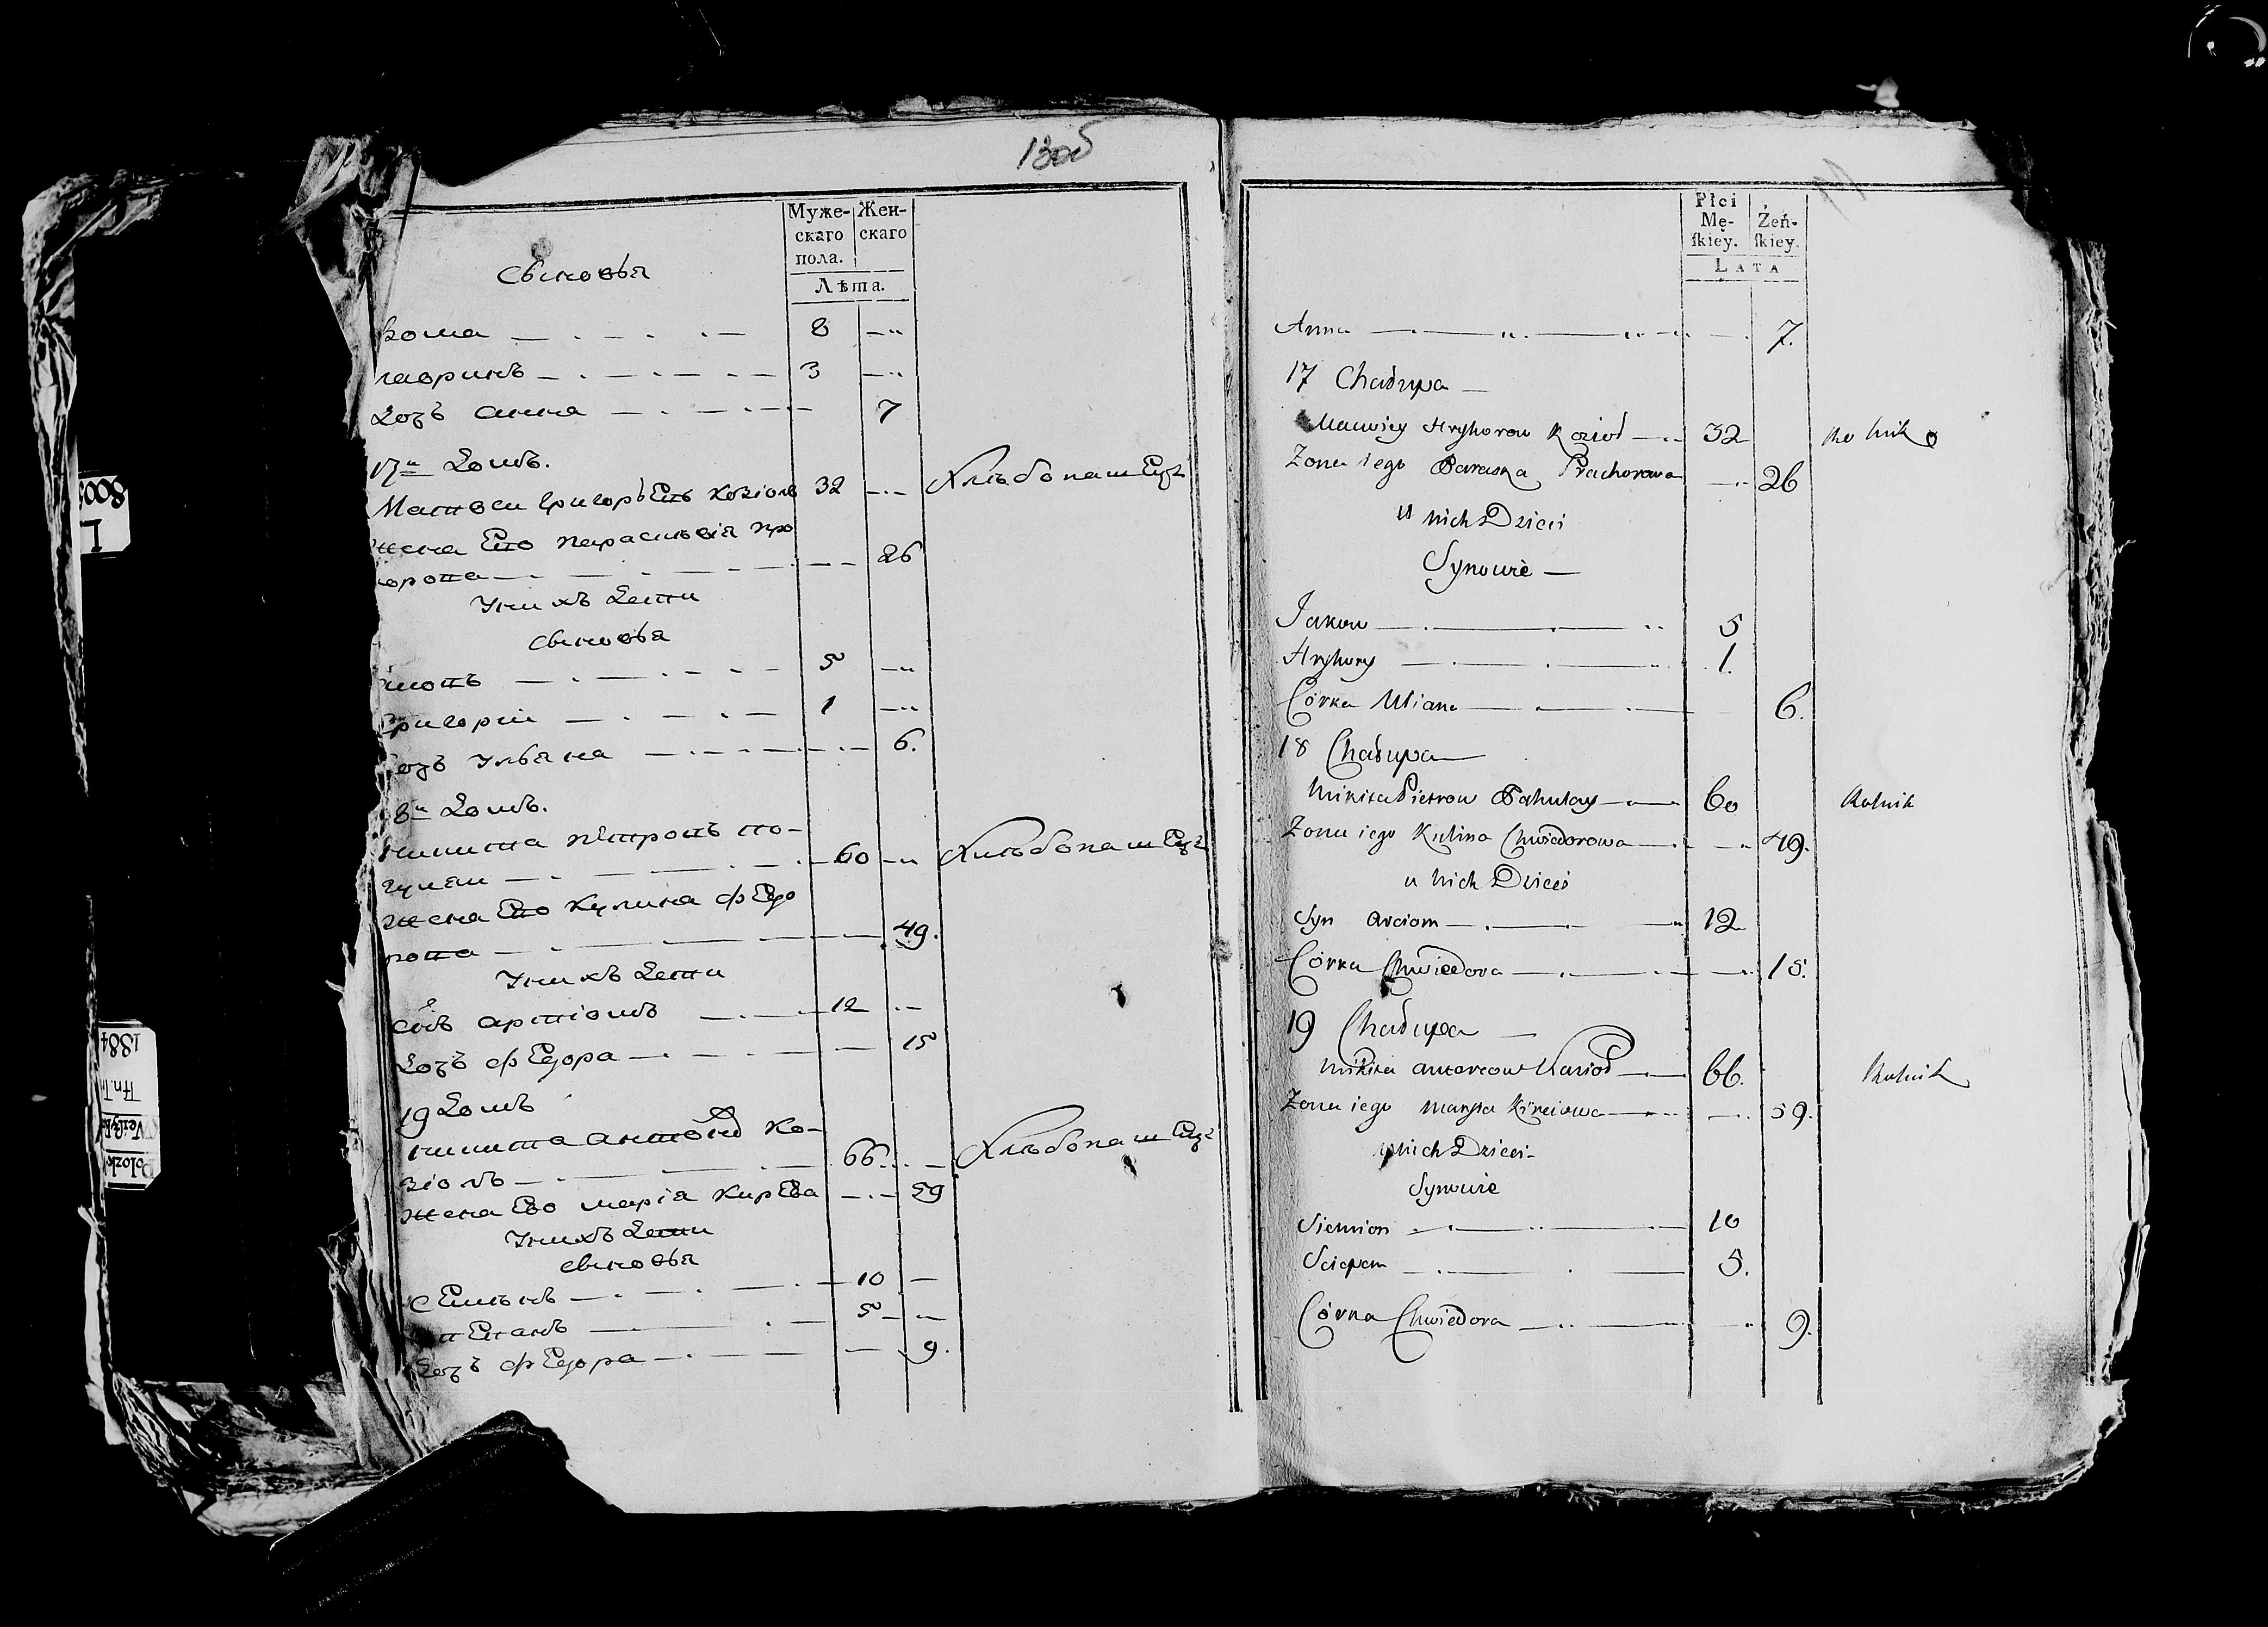 130б
Муже-
скаго
пола.
Жен-
скаго
Лѣта.
сыновья
Фома 8
лавринъ 3
Дочь анна 7
17й Домъ.
Матвеи Григорьевъ козіолъ 32 Хлѣбопашецъ
жена Ево парасковія про
хорова 26
Уних Дети
сыновья
Яковъ 5
Григорій 1
Дочь Ульяна 6.
8й Домъ.
никита петровъ по-
гуляи 60 Хлѣбопашецъ
жена Ево Кулина федо
рова 49.
Унихъ Дети
сынъ артіомъ 12
Дочь федора 15
19 Домъ
никита антоновъ ко-
зіолъ 66 Хлѣбопашецъ
жена Ево марія кирева 59
Унихъ Дети
сыновья
семіонъ 10
степанъ 5
Дочь федора 9.
Płci
Mę-
ſkiey.
Żeń-
ſkiey.
LATA
Anna 7.
17 Chałupa
Maciey Hryhorow Kozioł 32 Rolnik
Zona iego Paraska Prachorowa 26
U nich Dzieci
Synowie
Jakow 5
Hryhory 1.
Córka Uliana 6.
18 Chałupa
Mikita Pietrow Pahulay 60 Rolnik
Zona iego Kulina Chwiedorowa 49.
u nich Dzieci
Syn Arciom 12
Córka Chwiedora 15.
19 Chałupa
Mikita Kozioł 66. Rolnik
Zona iego Maryia Kireiowa 59.
u nich Dzieci
Synowie
Siemion 10
Sciepan 5.
Córka Chwiedora 9.
1884